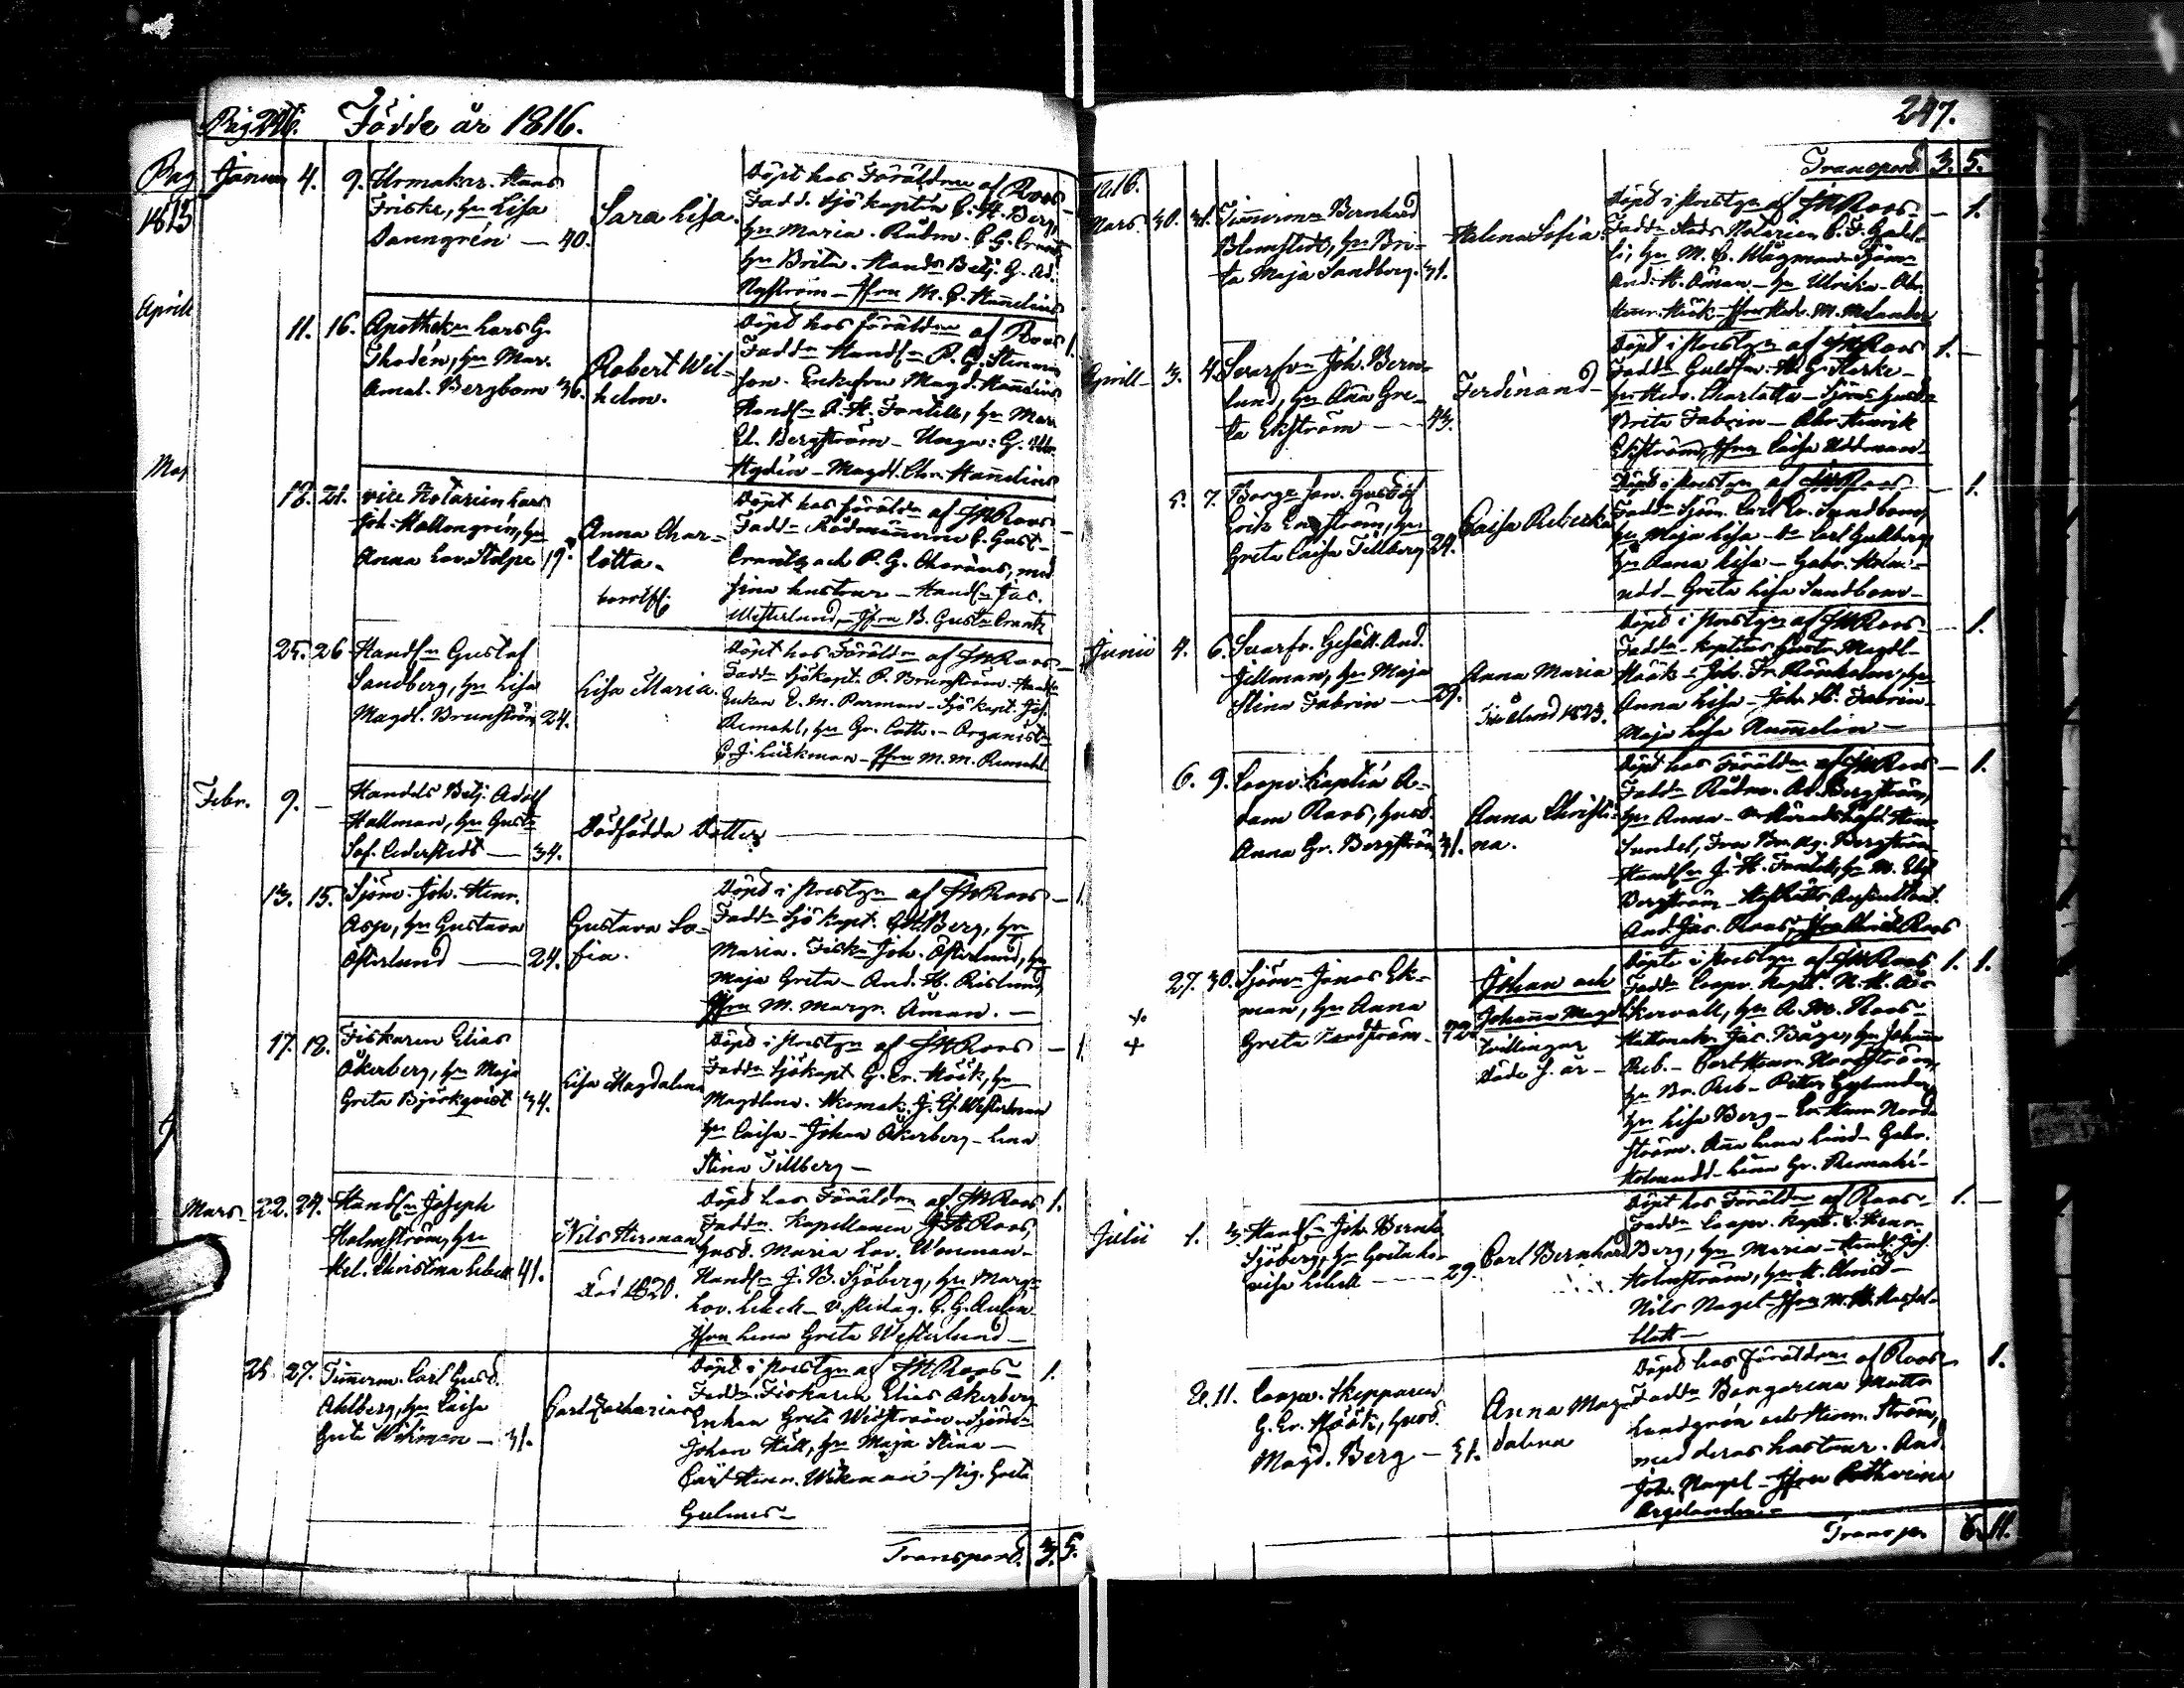 Pag 246. Födde år 1816.
Januar 4. 9. Urmakar. Hans
Friske, hu Lisa
Danngrén — 40.
Sara Lisa.
Döpt hos Föräldrne af Roos
Fadd. Sjökaptén C. H. Berg,
hu Maria. Rådm. C. G. Crantz
hu Brita. Hands Betj. G. Ad.
Nyström — Jfru M. C. Hannelius
11. 16. Apothekn Lars G.
Thodén, hu Mar.
Amal. Bergbom 36.
Robert Wil-
helm.
Döpt hos föräldrn af Roos 1.
Faddn Handln P. G.
son. Enkefru Magd. Hannelius
Handln A. H. Fontell, hu Mar.
El. Bergström — G.
Hydén — Magd. Chr. Hannelius
18. 21. vice Notarien Lars
Joh. Hallongrén, hu
Anna Lov. Stolpe 19.
Anna Char-
lotta.
Döpt hos föräldrn af JMRoos
Faddn Rådmännerne C. Gust.
Crantz och P. G. Choræus, med
sina hustrur — Handln Jac.
Westerlund, — Jfru B. Gusta Crantz
25. 26 Handln Gustaf
Sandberg, hu Lisa
Magdl. Brunström 24.
Lisa Maria.
Döpt hos Föräldrn af JMRoos
Faddn Sjökapt. P. Brunström
Enkan E. M. Parman — Sjökapt. Joh.
Remahl, hu Gr. Cath. — Organistn
C. J. Lückman — Jfru M. M. Remahl
Febr. 9. — Handels Betj. Adolf
Hallman, hu Gusta
Sof. Cederstedt — 34.
Dödfödda Dotter
13. 15. Sjöm. Joh. Henr.
Asp, hu Gustava
Österlund — 24.
Gustava So-
fia.
Döpt i Prestgn af JMRoos — 1.
Faddn Sjökapt. C. H. Berg, hu
Maria. Fiskn Joh. Österlund, hu
Maja Greta — And. H. Rislund,
Jfru M. Margr. Åman. —
17. 18. Fiskaren Elias
Åkerberg, hu Maja
Greta Björkqvist 34.
Lisa Magdalena
Döpt i Prestgn af JMRoos — 1.
Faddn Sjökapt G. Er. Höök, hu
Magdlena. Skomak. J. Ef. Westerlund
hu Caisa — Johan Åkerberg — Lena
Stina Tillberg —
Mars 22. 24. Handln Joseph
Holmström, hu
Hel. Christina Lebell 41.
Nils Herman
Död 1820.
Döpt hos Föräldrn af JMRoos 1.
Faddn. Kapellanen J. M. Roos,
hust. Maria Lov. Wenman —
Handln J. B. Sjöberg, hu Margr
Lov. Lebell — v. Pedag. C. G. Aulin
Jfru Lena Greta Westerlund —
25 27. Timmerm. Carl Gust.
Ahlberg, hu Caisa
Greta Wikman — 31.
Carl Zacharias
Döpt i Prestgn af JMRoos — 1.
Faddn. Fiskaren Elias Åkerberg
Enkan Greta Widström — Sjömn
Johan Häll, hu Maja Stina —
Carl Henr. Wikman — Pig. Greta
Transport. 3. 5.
247.
Transport 3. 5.
1816.
Mars. 30. 31. Timmermn Bernhard
Blomstedt, hu Bri-
ta Maja Sandberg. 31.
Helena Sofia.
Döpt i Prestgn af JMRoos — 1.
Faddn Stads Notarien C. F. Gadel-
li, hu M. C. Wägman — Sjömn
And. H. Åman — hu Ulrika — Abr.
Henr. Höök — Jfru Hed. M. Melander
Aprill — 3. 4. Svarfvn Joh. Bern-
lund, hu Anna Gre-
ta Ekström — 43.
Ferdinand
Döpt i Prestgn af JMRoos 1. —
Faddn Guldsm. H. G. Starke —
hu Hedv. Charlotta — Sjöms hustn
Brita Fabrin — Abr. Henrik
Ekström, Jfru Caisa Uddman
5. 7. Borgn son. Gustaf
Erik Enström, hu
Greta Caisa Tillberg 24.
Caisa Rebecka
Döpt i Prestgn af JMRoos — 1.
Faddn Sjöm. Carl Er. Sundbom,
hu Maja Lisa — do Carl Gullberg
hu Anna Lisa — Gabr. Holm-
udd — Greta Lisa Sundbom —
Junii 4. 6. Svarfv. Gesäll. And.
Jillman, hu Maja
Stina Fabrin — 29.
Anna Maria
Till Åland 1823.
Döpt i Prestgn af JMRoos — 1.
Faddn — Kaptens hustn Magdl.
Höök — Joh. Fr. Rönnholm, hu
Anna Lisa — Joh. H. Fabrin
Maja Lisa Nummelin —
6. 9. Coopv. Kaptén A-
dam Roos, hust.
Anna Gr. Bergström 31.
Anna Christi-
na.
Döpt hos Föräldrn af JMRoos — 1.
Faddn Rådm. And. Bergström,
hu Anna — Häradshöfd. Henr.
Sundel, Fru Br. Ag. Bergström
Handln J. H. Fontell, hu M. El.
Bergström — HofRätts Auscultant.
And. Jac. Roos, Jfru Roos
27. 30. Sjömn Jonas Ek-
man, hu Anna
Greta Nordström — 42.
Johan och
Johanna Magdl.
Tvillingar
Döde s. år —
Döpte i Prestgn af JMRoos 1. 1.
Faddn Coopv. Kapt. N. H. A-
kervall, hu A. M. Roos —
Hattmak. Jac. Båge, hu Johanna
Reb. — Carl Henr. Nordström,
hu Br. Reb — Petter Gyllander,
hu Lisa Berg — Er. Henr Nord-
ström. Anna Lena Lind — Gabr.
Holmudd — Lena Gr. Remahl —
Julii 1. 3. Handln Joh. Bernh.
Sjöberg, hu Greta Lo-
visa Lebell — 29.
Carl Bernhard
Döpt hos Föräldrn af Roos — 1. —
Faddn Coopv. Kapt. C. Henr
Berg, hu Maria — Handl. Jos.
Holmström, hu H. Christ —
Nils Nagel — Jfru M. H. Hassel-
blatt —
11. Coopv. Skepparen
G. Er. Höök, hust.
Magd. Berg — 31.
Anna Mag-
dalena
Döpt hos Föräldrne af Roos — 1.
Faddn Borgarena Matts
Lundgrén och Henr. Ström,
med deras hustrur. And.
Joh. Nagel — Jfru Catharina
Argelander —
Transp. 6. 11.
Pag
1815
Aprill
Maj